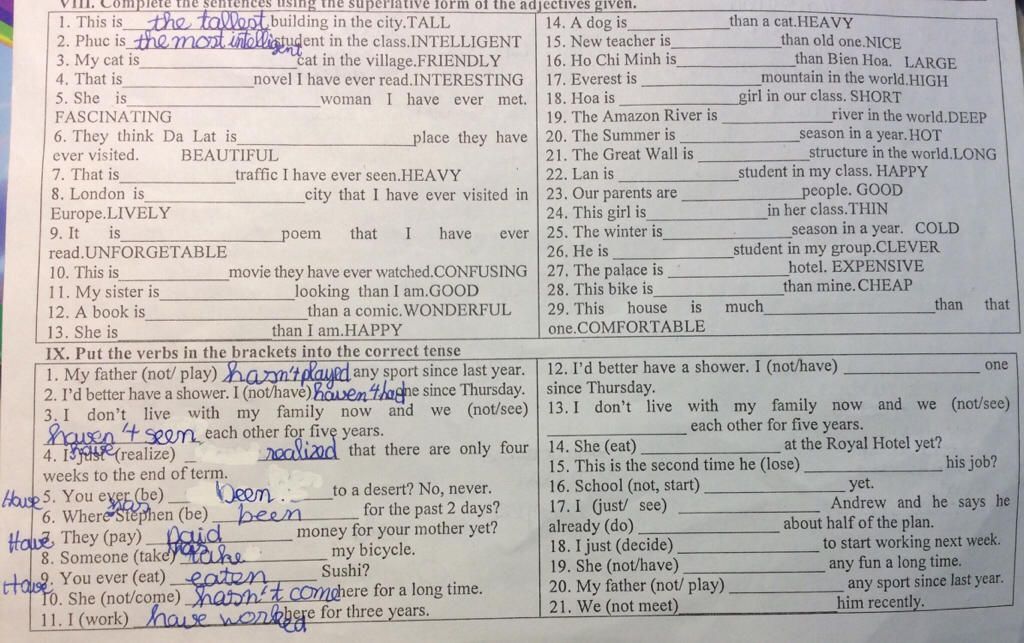 VIII. Complete the sentences using the superlative form of the adjectives given.
1. This is the tallest building in the city.TALL
2. Phuc is the most intelligent student in the class.INTELLIGENT
3. My cat is____cat in the village.FRIENDLY
4. That is____novel I have ever read.INTERESTING
5. She is____woman I have ever met.
FASCINATING
6. They think Da Lat is____place they have
ever visited. BEAUTIFUL
7. That is____traffic I have ever seen.HEAVY
8. London is____city that I have ever visited in
Europe.LIVELY
9. It is____poem that I have ever
read.UNFORGETABLE
10. This is____movie they have ever watched.CONFUSING
11. My sister is____looking than I am.GOOD
12. A book is____than a comic.WONDERFUL
13. She is____than I am.HAPPY
14. A dog is____than a cat.HEAVY
15. New teacher is____than old one.NICE
16. Ho Chi Minh is____than Bien Hoa. LARGE
17. Everest is____mountain in the world.HIGH
18. Hoa is____girl in our class. SHORT
19. The Amazon River is____river in the world.DEEP
20. The Summer is____season in a year.HOT
21. The Great Wall is____structure in the world.LONG
22. Lan is____student in my class. HAPPY
23. Our parents are____people. GOOD
24. This girl is____in her class.THIN
25. The winter is____season in a year. COLD
26. He is____student in my group.CLEVER
27. The palace is____hotel. EXPENSIVE
28. This bike is____than mine.CHEAP
29. This house is much____than that
one.COMFORTABLE
IX. Put the verbs in the brackets into the correct tense
1. My father (not/ play) hasn't played any sport since last year.
2. I'd better have a shower. I (not/have) haven't had one since Thursday.
3. I don't live with my family now and we (not/see)
haven't seen each other for five years.
4. I just (realize) have realized that there are only four
weeks to the end of term.
Have 5. You ever (be) been to a desert? No, never.
6. Where Stephen (be) has been for the past 2 days?
Have 7. They (pay) paid money for your mother yet?
8. Someone (take) has take my bicycle.
Have 9. You ever (eat) eaten Sushi?
10. She (not/come) hasn't come here for a long time.
11. I (work) have worked here for three years.
12. I'd better have a shower. I (not/have) ____ one
since Thursday.
13. I don't live with my family now and we (not/see)
____ each other for five years.
14. She (eat) ____ at the Royal Hotel yet?
15. This is the second time he (lose) ____ his job?
16. School (not, start) ____ yet.
17. I (just/ see) ____ Andrew and he says he
already (do) ____ about half of the plan.
18. I just (decide) ____ to start working next week.
19. She (not/have) ____ any fun a long time.
20. My father (not/ play) ____ any sport since last year.
21. We (not meet)____ him recently.